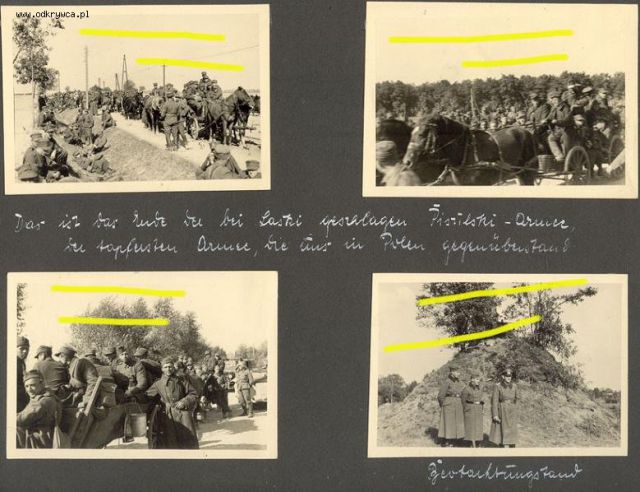 www.odkrywca.pl
Das ist das Ende der bei Laski geschlagen Pissulski-Armee,
der tapfersten Armee, die uns in Polen gegenüberstand
Beobachtungsstand